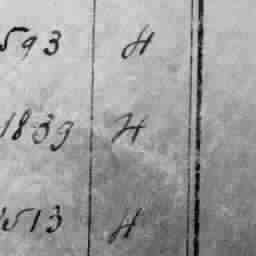 593 H
1839 H
1513 H